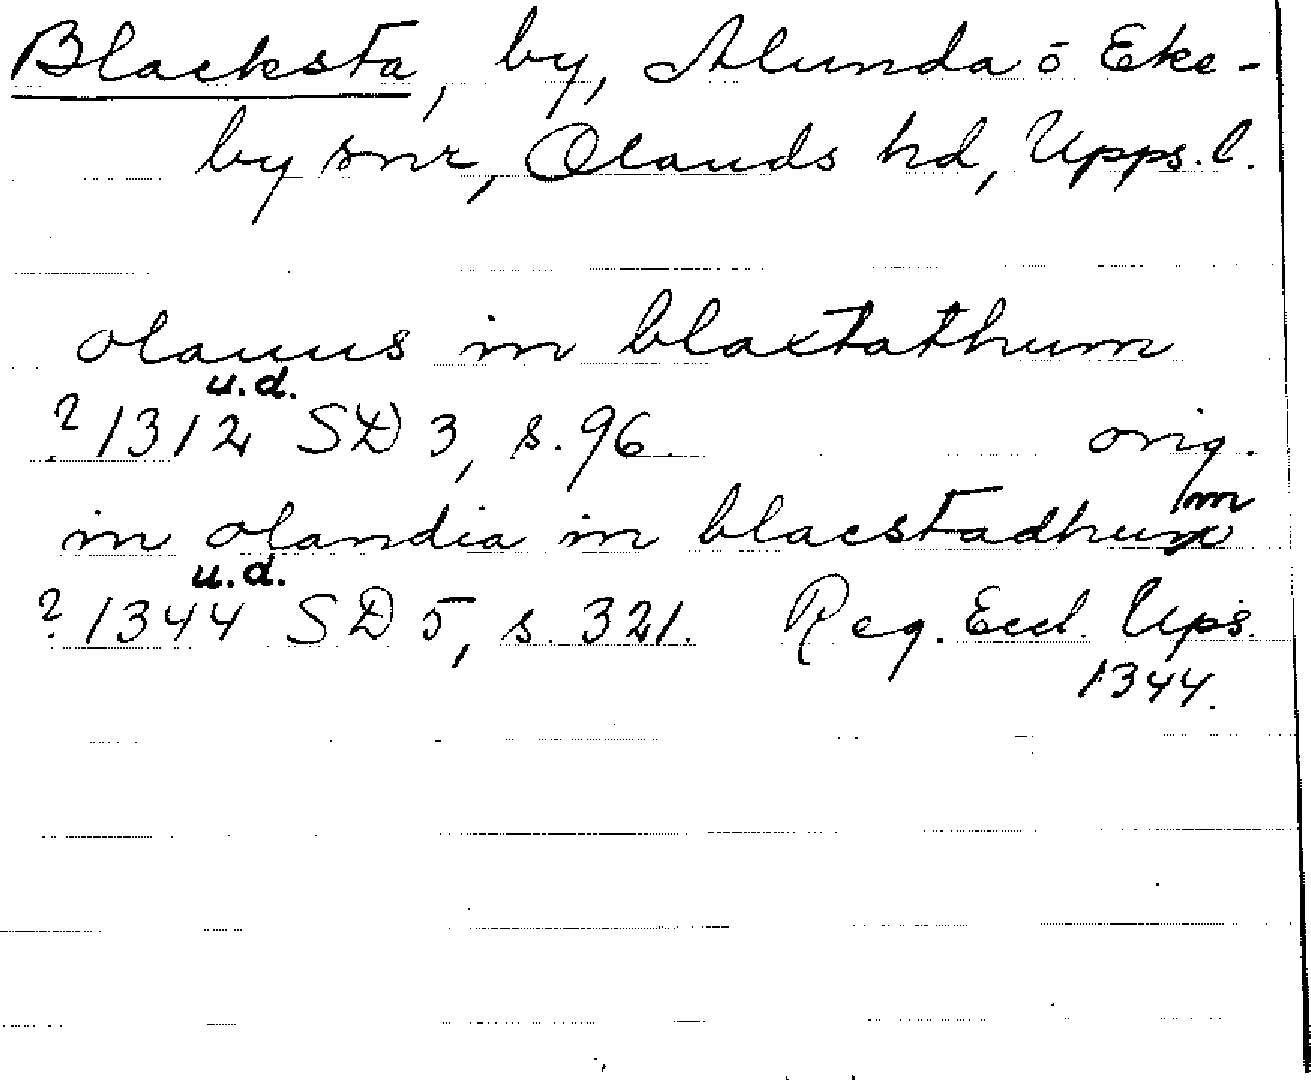 Blacksta, by, Alunda o Eke-
by snr, Olands hd, Upps. l.
olauus in blaxtathum
u.d.
? 1312 SD 3, s. 96. orig.
in olandia in blacstadhum
u.d.
? 1344 SD 5, s. 321. Reg. Eccl. Ups.
1344.